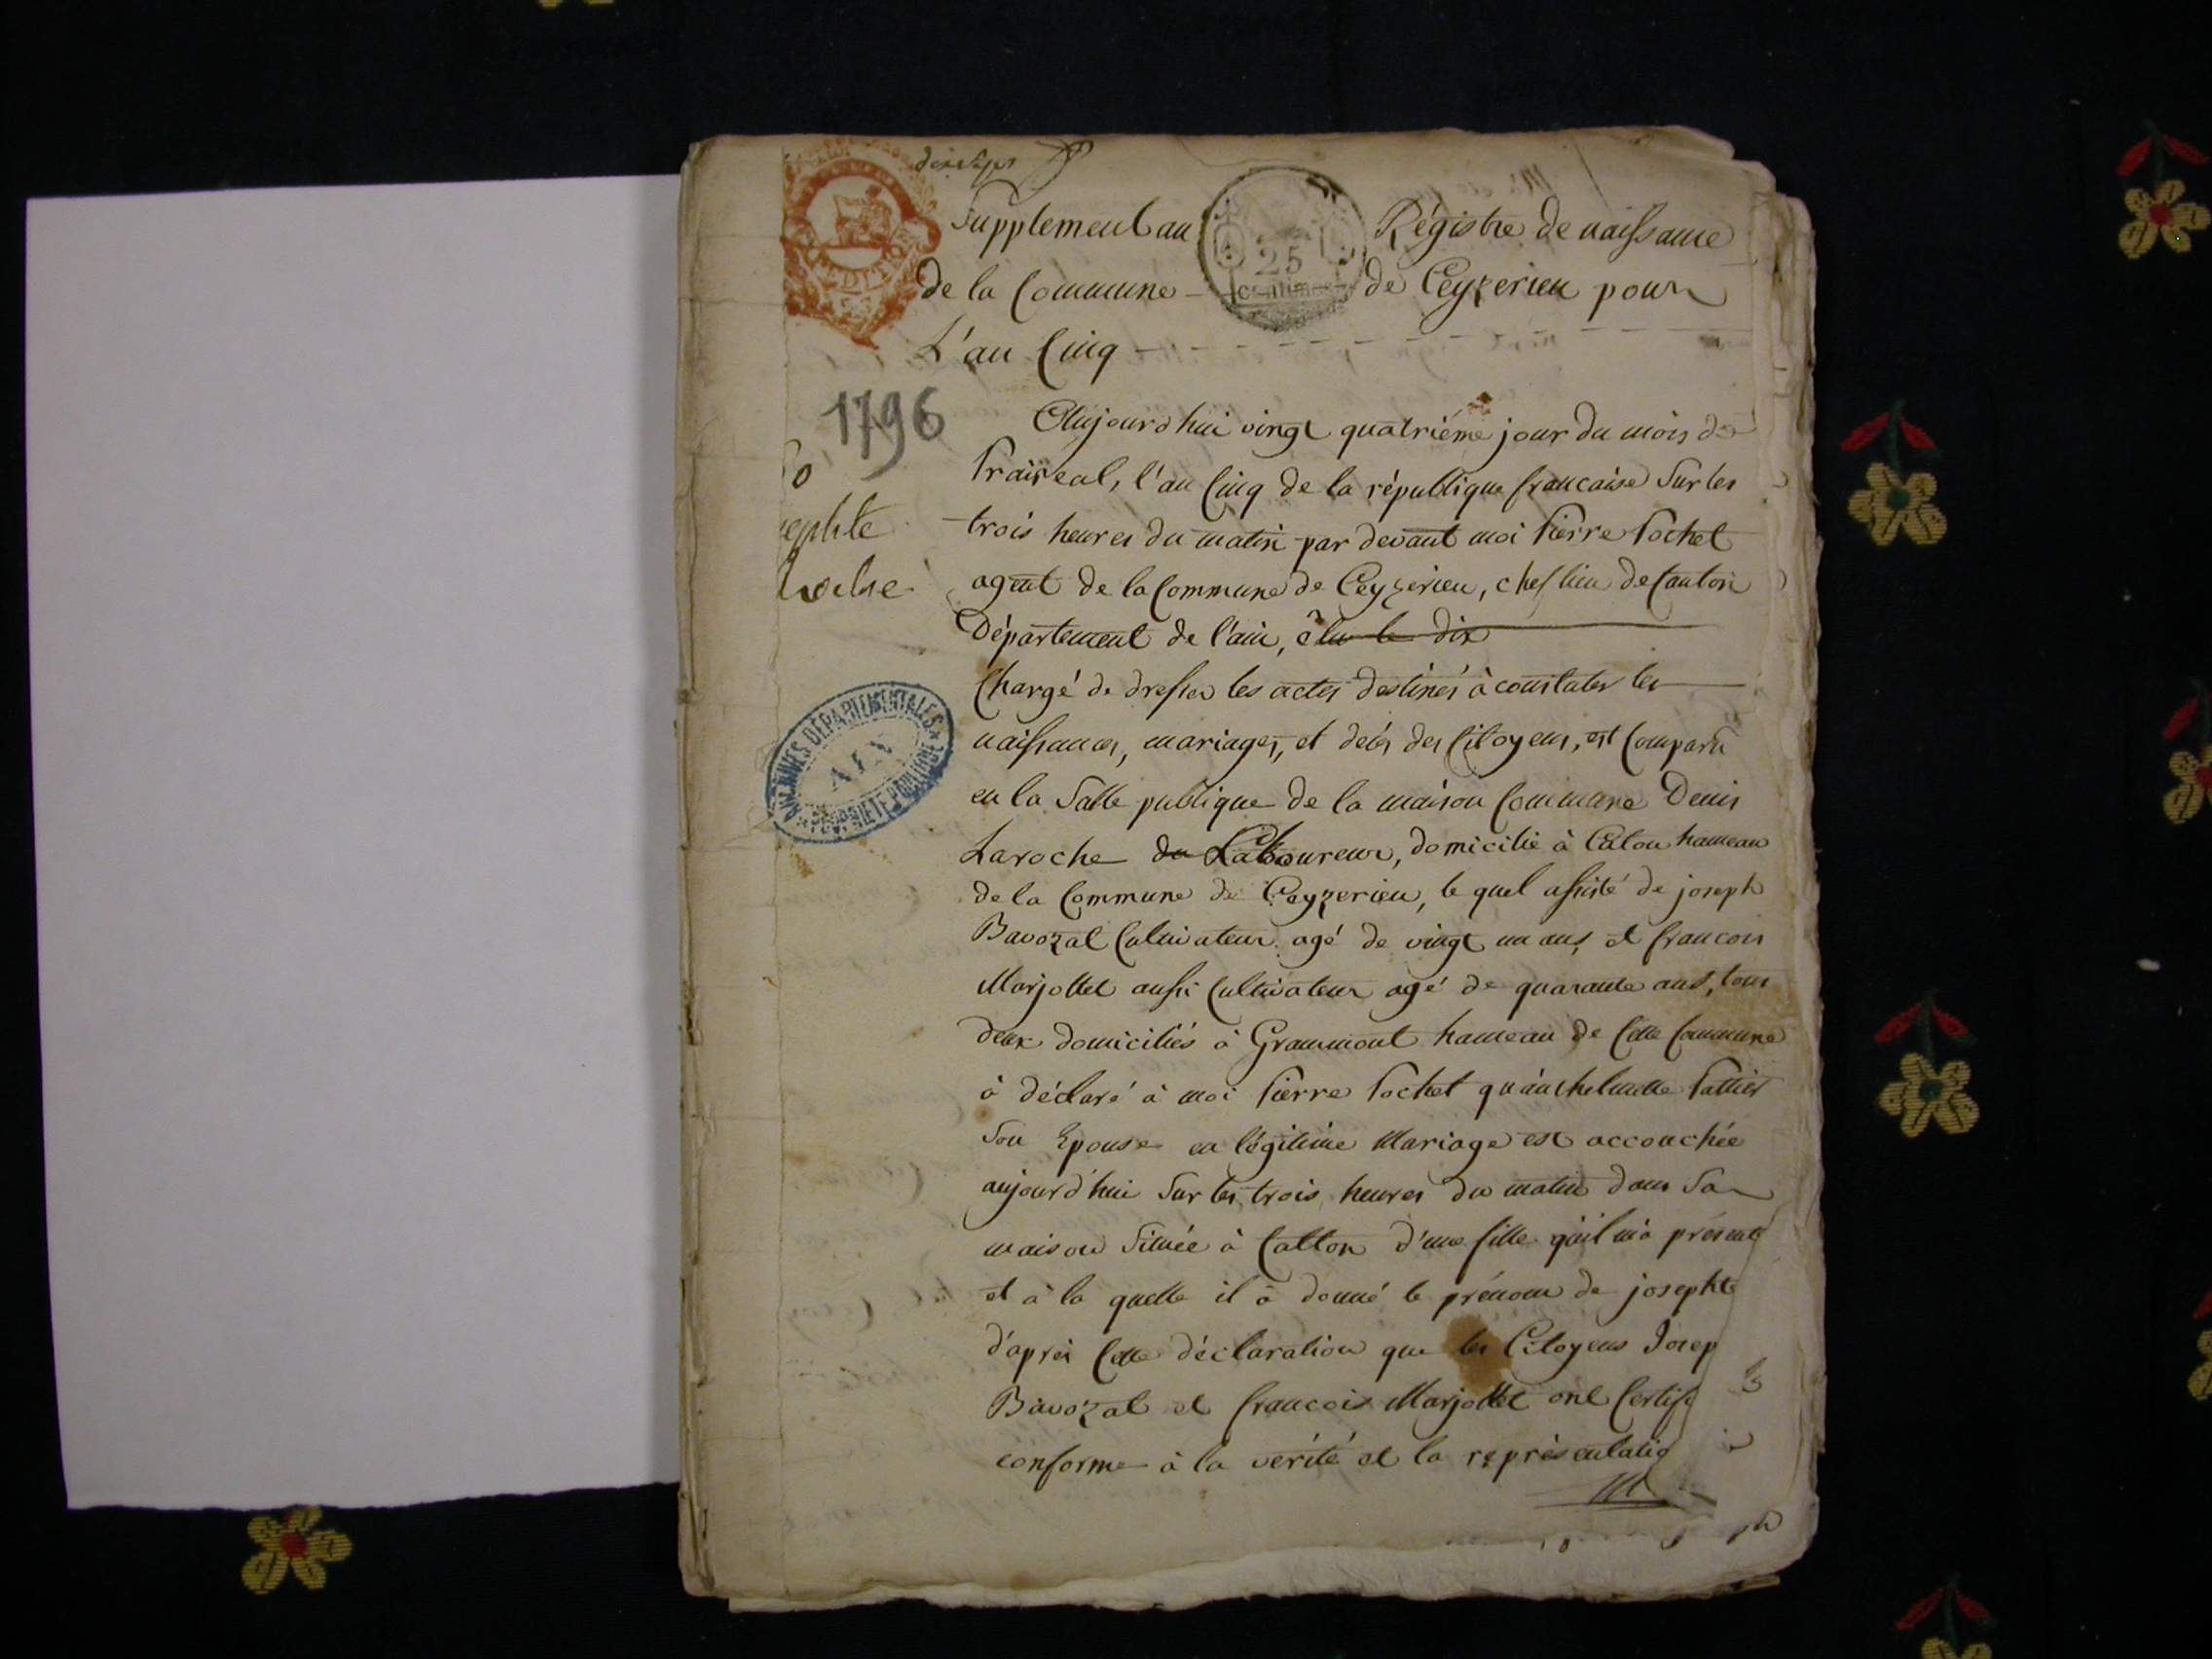 Supplement au Régistre de naissance
de la Commune de Ceyzerieu pour
L'an Cinq
1796
Aujourd'hui vingt quatriéme jour du mois de
Praireal, l'an Cinq de la république francaise Sur les
trois heures du matin par devant moi Pierre Pochet
agent de la Commune de Ceyzerieu, chef lieu de Canton
Département de l'ain, élu le dix
Chargé de dresser les actes destinés à constater les
naissances, mariages, et decès des Citoyens, est Comparu
en la Salle publique de la maison Commune Denis
Laroche du Laboureur, domicilié à Caton hameau
de la Commune de Ceyzerieu, le quel assisté de joseph
Bavozat Cultivateur agé de vingt un ans, et francois
Marjollet aussi Cultivateur agé de quarante ans, tous
deux domiciliés à Grammont hameau de Cette Commune
à déclaré à moi Pierre Pochet qu'anthelmette
Son Epouse en légitime Mariage est accouchée
aujourd'hui Sur les trois heures du matin dans Sa
maison Située à Catton d'une fille qu'il m'a présenté
et à la quelle il à donné le prénom de josephte
d'après Cette déclaration que les Citoyens Josep
Bavozat et francois Marjollet ont Certifi
conforme à la vérité et la représentatio
ephte
Laroche
ARCHIVES DÉPARTEMENTALES
AIN
PROPRIETE PUBLIQUE
25
centimes